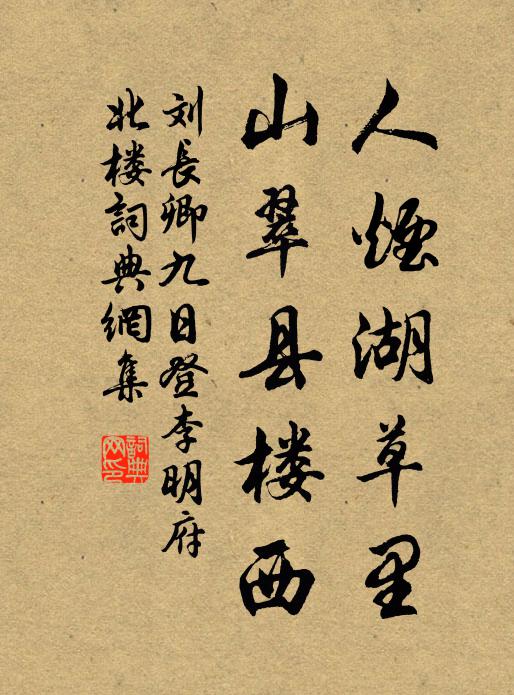 人煙湖草里
山翠县楼西
刘長卿九日登李明府
北楼詞典網集
詞典网印